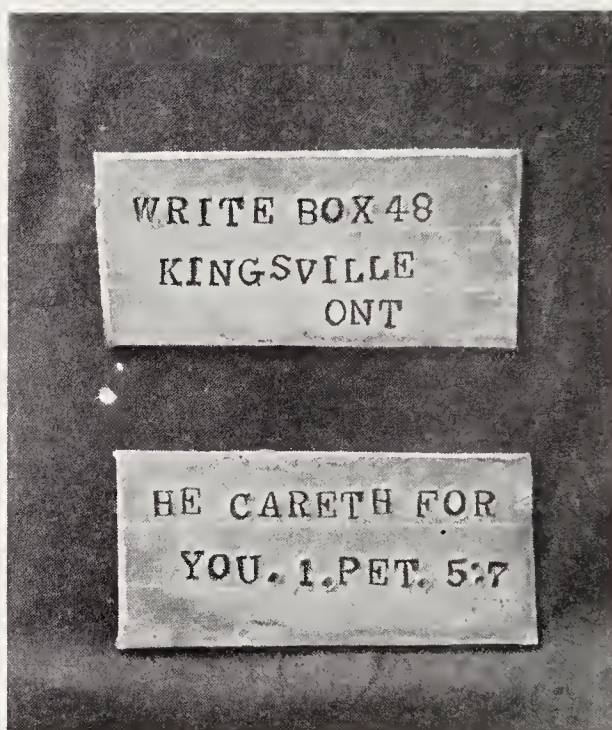 WRITE BOX 48
KINGSVILLE
ONT
HE CARETH FOR
YOU. 1. PET. 5:7